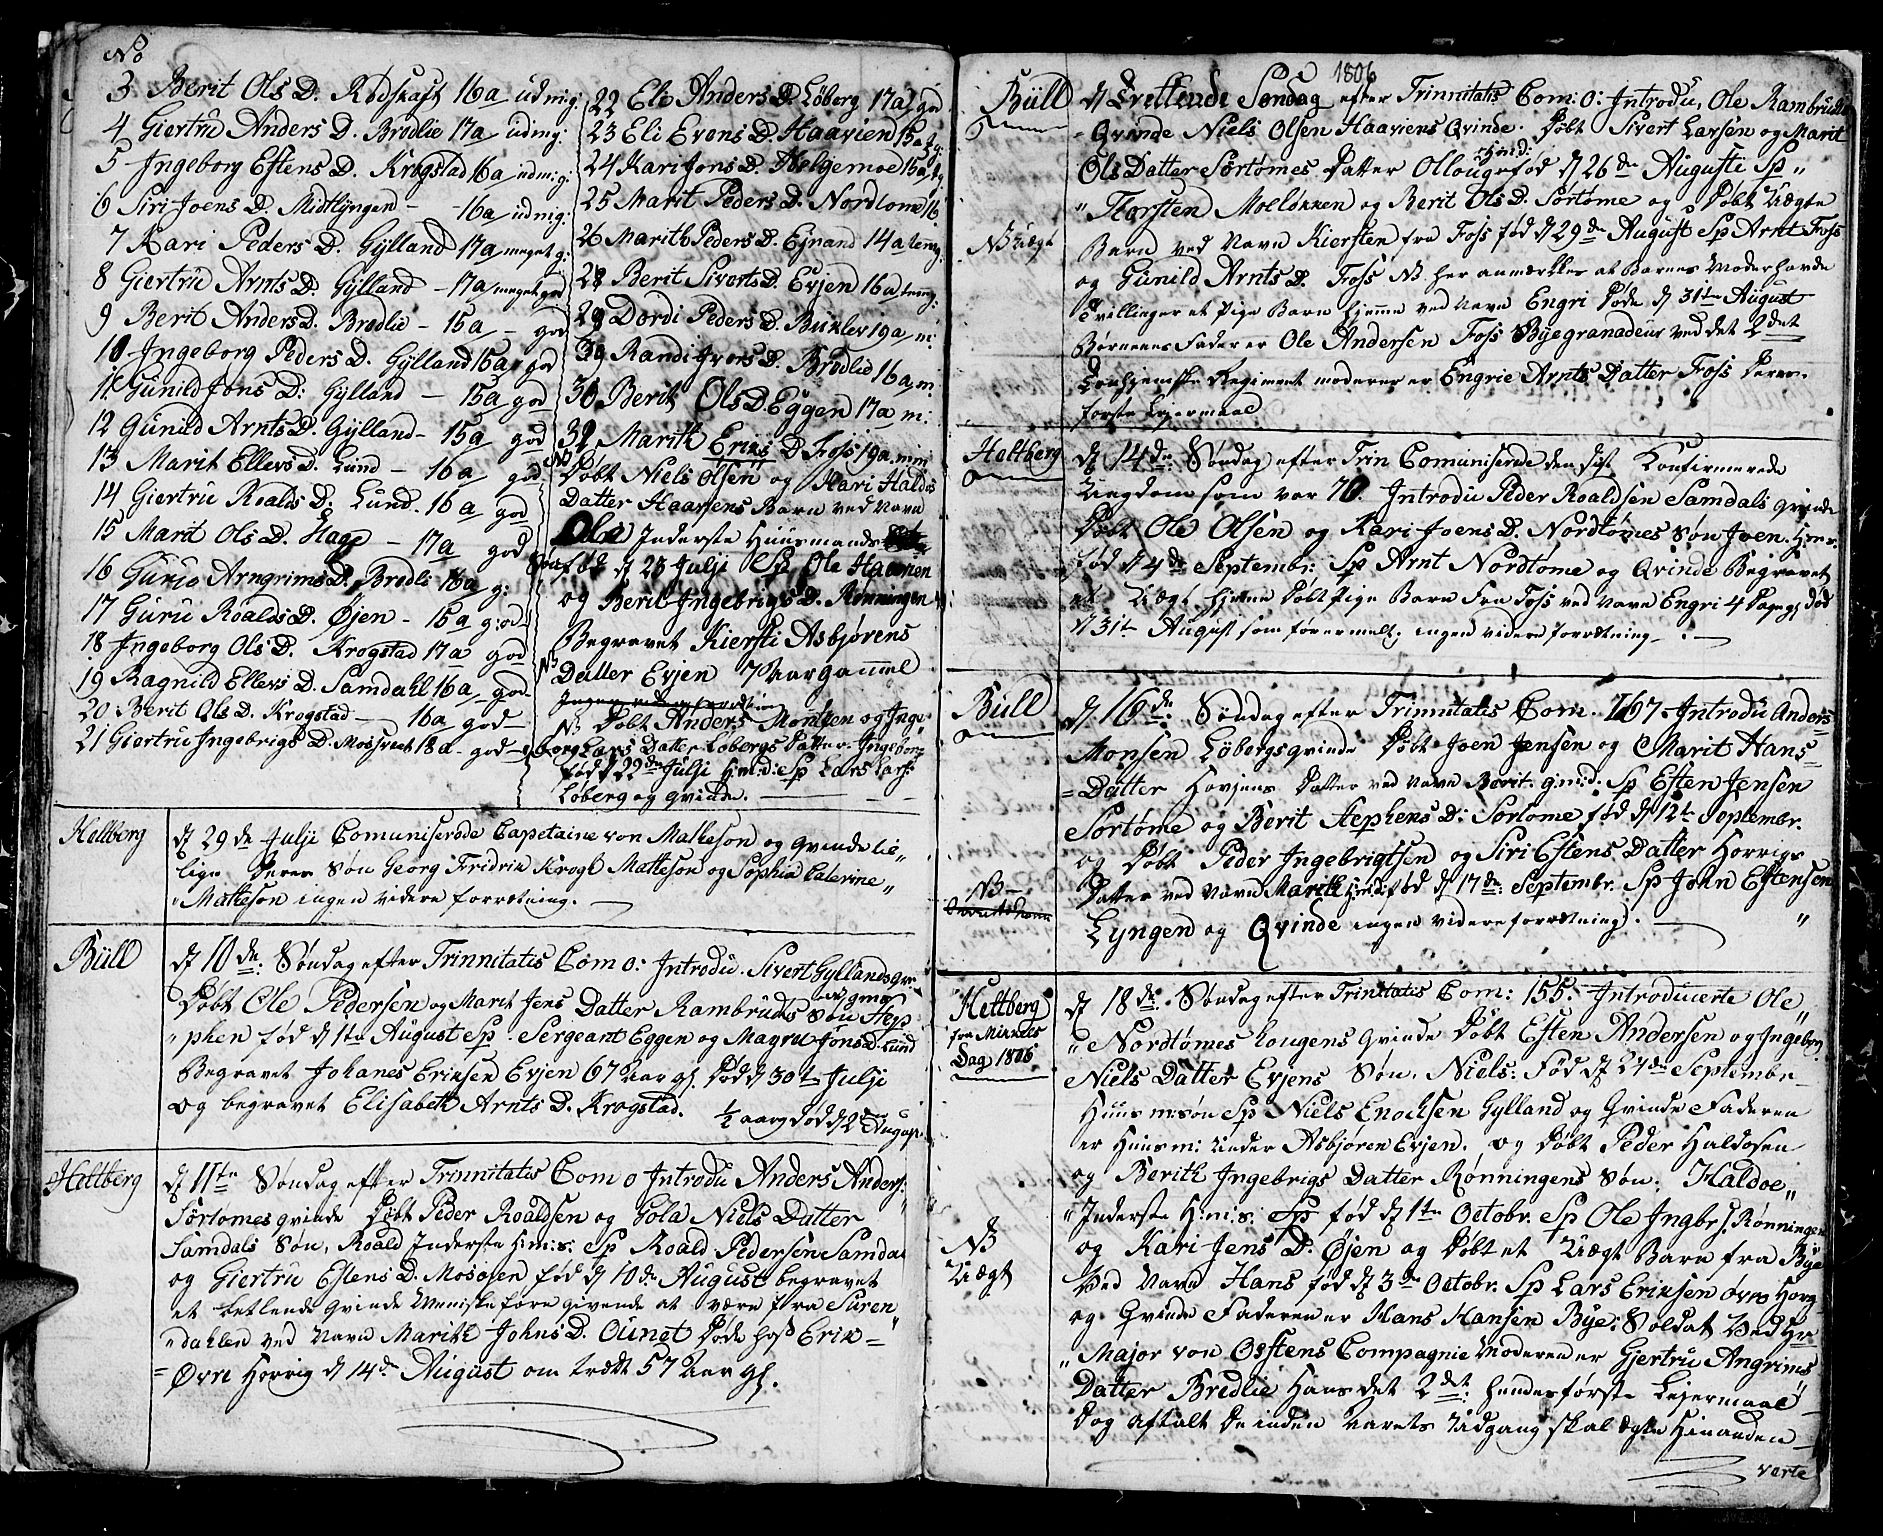 No
3 Berit Ols D. Rødskaft 16a udmig:
4 Giertru Anders D. Brødlie 17a udmig:
5 Ingeborg Estens D. Krogstad 16a udmig:
6 Siri Joens D. Midtlyngen - 16a udmig:
7 Kari Peders D. Gylland 17a meget g:
8 Giertru Arnts D. Gylland - 17a meget god
9 Berit Anders D. Brødlie - 15a - god
10 Ingeborg Peders D. Gylland 15a god
11 Gunild Jons D: Gylland - 15a god
12 Gunild Arnts D. Gylland - 15a god
13 Marit Ellevs D. Lund - 16a god
14 Giertru Roalds D. Lund. 16a god
15 Marit Ols D. Hage - 17a god
16 Guru Arngrims D. Brødli 16a g:
17 Guru Roalds D. Øjen - 15a g:od
18 Ingeborg Ols D. Krogstad 17a god
19 Ragnild Ellevs D. Samdahl 16a god
20 Berit Ols D. Krogstad - 16a god
21 Giertru Ingebrigs D. Mosrøet 18a - god
22 Eli Anders D. Løberg 17a god
23 Eli Evens D. Haavien 15a g:
24 Kari Jons D. Helgemoe 15a g:
25 Marit Peders D. Nordtome 16
26 Marith Peders D. Ejnand 14a temg.
28 Berit Siverts D. Evjen 16a temg:
29 Dordi Peders D. Buklev 19a m:
30 Randi Ivers D. Brødlie 16a m.
30 Berit Ols D. Eggen 17a m:
32 Marith Eriks D. Foss 19a. min
Døbt Niels Olsen og Kari Haldos
Datter Haavens Barn ved Navn
Ole Inderste Huusmands
Søn født d 23 Julji Sp Ole Haamen
og Berit Ingebrigs D. Rønningen
Begravet Kiersti Asbjørens
NB Datter Evjen 7 Aar gammel
NB Døbt Anders Montsen og Inge-
borg Lars Datter Løbergs Datter. Ingeborg
født d 22de Julji H:m:d: Sp Lars Lars:
Løberg og qvinde.
Heltberg d 29de Julji Comuniserede Capetaine von Matheson og qvinde ..
lige Deres Søn Georg Fridrik Krogh Matheson og Sophia Caterine
Matheson ingen videre forretning.
Büll d 10de: Søndag efter Trinnitatis Com 0: Introdu. Sivert Gyllands qv:
Døbt Ole Pedersen og Marit Jens Datter Rambruds Søn Step
phen født d 1te August Sp. Sergeant Eggen og Magret Jons d. Lund
Begravet Johanes Eriksen Evjen 67 Aar gl. Død d 30te Julji
og begravet Elisabeth Arnts D. Krogstad. ½ aar g død d 2den August
Heltberg d 11te Søndag efter Trinnitatis Com 0 Introdu Anders Anders:
Sørtomes qvinde Døbt Peder Roaldsen og Gola Niels Datter
Samdals Søn, Roald Inderste H:m:s: Sp Roald Pedersen Samdal
og Giertru Estens D. Mosøsen født d 10de August begravet
et betlende qvinde Menniske foregivende at være fra Suren
dahlen ved Navn Marith Johns D. Ounet Døde hoss Erik
Øvre Horrig d 14de August om trætt 57 Aar gl.
1806
Büll d Trettende Søndag efter Trinnitatis Com: 0: Introdu, Ole Rambruds
Qvinde Niels Olsen Haaviens Qvinde. Døbt Sivert Larsen og Marit
Ols Datter Sørtømes Datter Ollouge født d 26de Augusti Sp
Torsten Moeløkken og Berit Ols D. Sørtøme og Døbt Uægte
NB Uægt Barn ved Navn Kiersten fra Foss født d 29de August Sp Arnt Foss
og Gunild Arnts D. Foss NB. her anmærkes at Barnes Moder havde
Tvillinger et Pige Barn hjemme ved Navn Engri Døde d 31te August
Børnenes Fader er Ole Andersen Foss Byegranadeur ved det 2det
Tronhjemske Regiment moderen er Engrie Arnts Datter Foss Deres
første Lejermaal
Heltberg d 14de: Søndag efter Trin Comuniserede den sidst Konfirmerede
Ungdom som var 70. Introdu Peder Roaldsen Samdals qvinde
Døbt Ole Olsen og Kari Joens D. Nordtømes Søn Joen. H:m:s.
født d 4de Septembr: Sp Arnt Nordtøme og Qvinde Begravet
et Uægt hjemme Døbt Pige Barn fra Foss ved Navn Engri 4 Dage gl død
d 31te August som før ermelt; ingen videre forretning.
Büll d 16de: Søndag efter Trinnitatis Com. 167 Introdu Anders
Monsen Løbergs qvinde Døbt Joen Jensen og Marit Hans
Datter Hovjens Datter ved Navn Berit. g.m:d: Sp Esten Jensen
Sørtøme og Berit Stephens D: Sørtome født d 12te Septembr.
og Døbt Peder Ingebrigtsen og Siri Estens Datter Horrigs
NB Datter ved Navn Marith H:m:d: født d 17de: Septembr. Sp John Estensen
Lyngen og Qvinde ingen videre forretning.
Heltberg d 18de. Søndag efter Trinitatis Com: 155: Introducerte Ole
fra Mikkels Dag 1806 Nordtømes Lougens qvinde Døbt Esten Andersen og Ingebrg
Niels Datter Evjens Søn, Niels: Født d 27de Septembr
Huus m:søn Sp Niels Enochsen Gylland og Qvinde Faderen
er Huusm: under Asbjøren Evjen. og Døbt Peder Haldosen
og Berith Ingebrigs Datter Rønningens Søn: Haldoe
Inderste H:m:s: Sp født d 1te Octobr. Sp Ole Ingbr. Rønningen
NB og Kari Jens D. Øjen og Døbt et Uægt Barn fra Bye
Uægt Ved Navn Hans født d 3de Octobr. Sp Lars Eriksen øvre Horg
og Qvinde Faderen er Hans Hansen Bye: Soldat Ved Hr
Major von Osstens Compagnie Moderen er Gjertru Angrims
Datter Brødlie Hans det 2det: hendes første Lejermaal
Dog aftalt De inden Aarets Udgang skal ægte Hinanden
verte